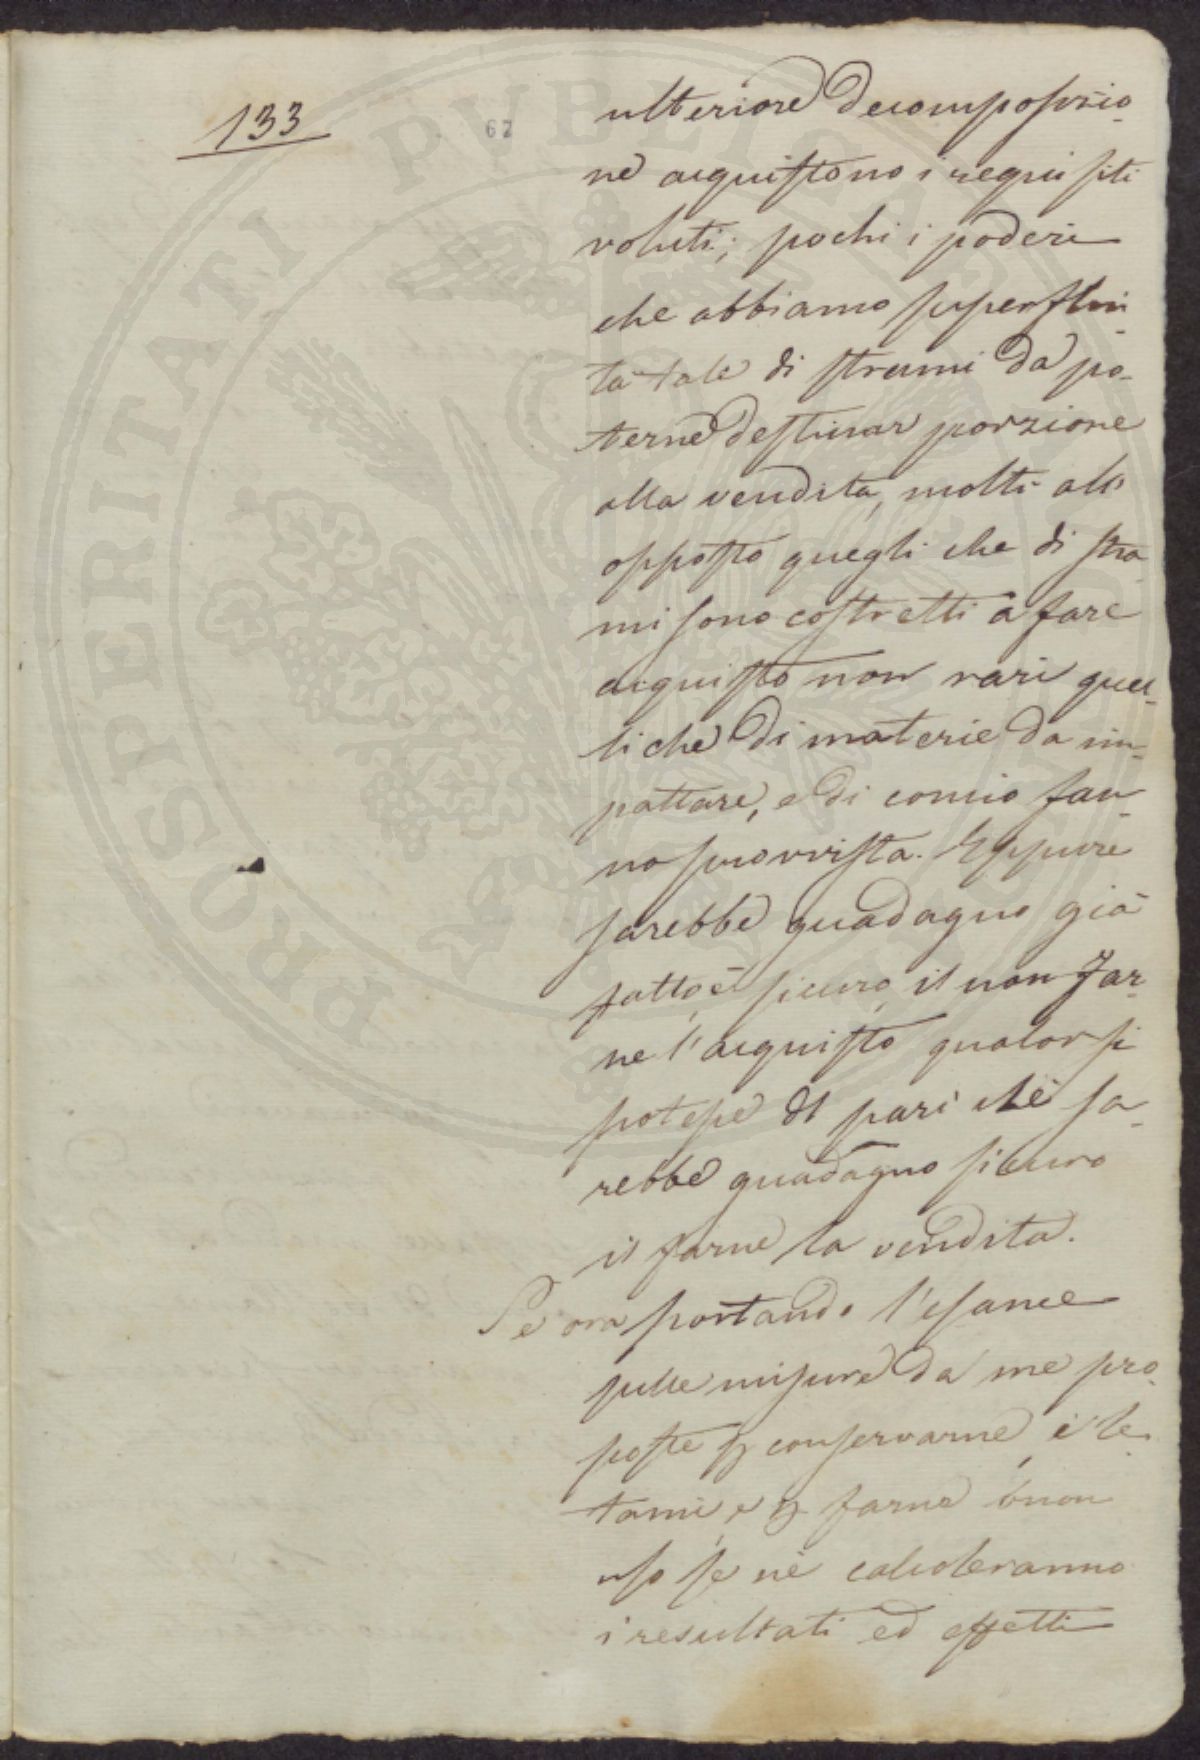 133
67
ulteriore decomposizio-
ne acquistono i requisiti
voluti; pochi i poderi
che abbiamo superflui-
tà tale di strami da po-
terne destinar porzione
alla vendita, molti all'
opposto quegli che di stra-
mi sono costretti a fare
acquisto non rari quel-
li che di materie da im-
pattare, e di concio fan-
no provvista. Eppure
sarebbe guadagno già
fatto, e sicuro, il non far-
ne l'acquisto qualor si
potesse al pari che sa-
rebbe guadagno sicuro
il farne la vendita.
Se ora portando l'esame
sulle misure da me pro-
poste p conservarne i le-
tami, e p farne buon
uso se ne calcoleranno
i resultati ed effetti
PROSPERITATI PVBLICAE